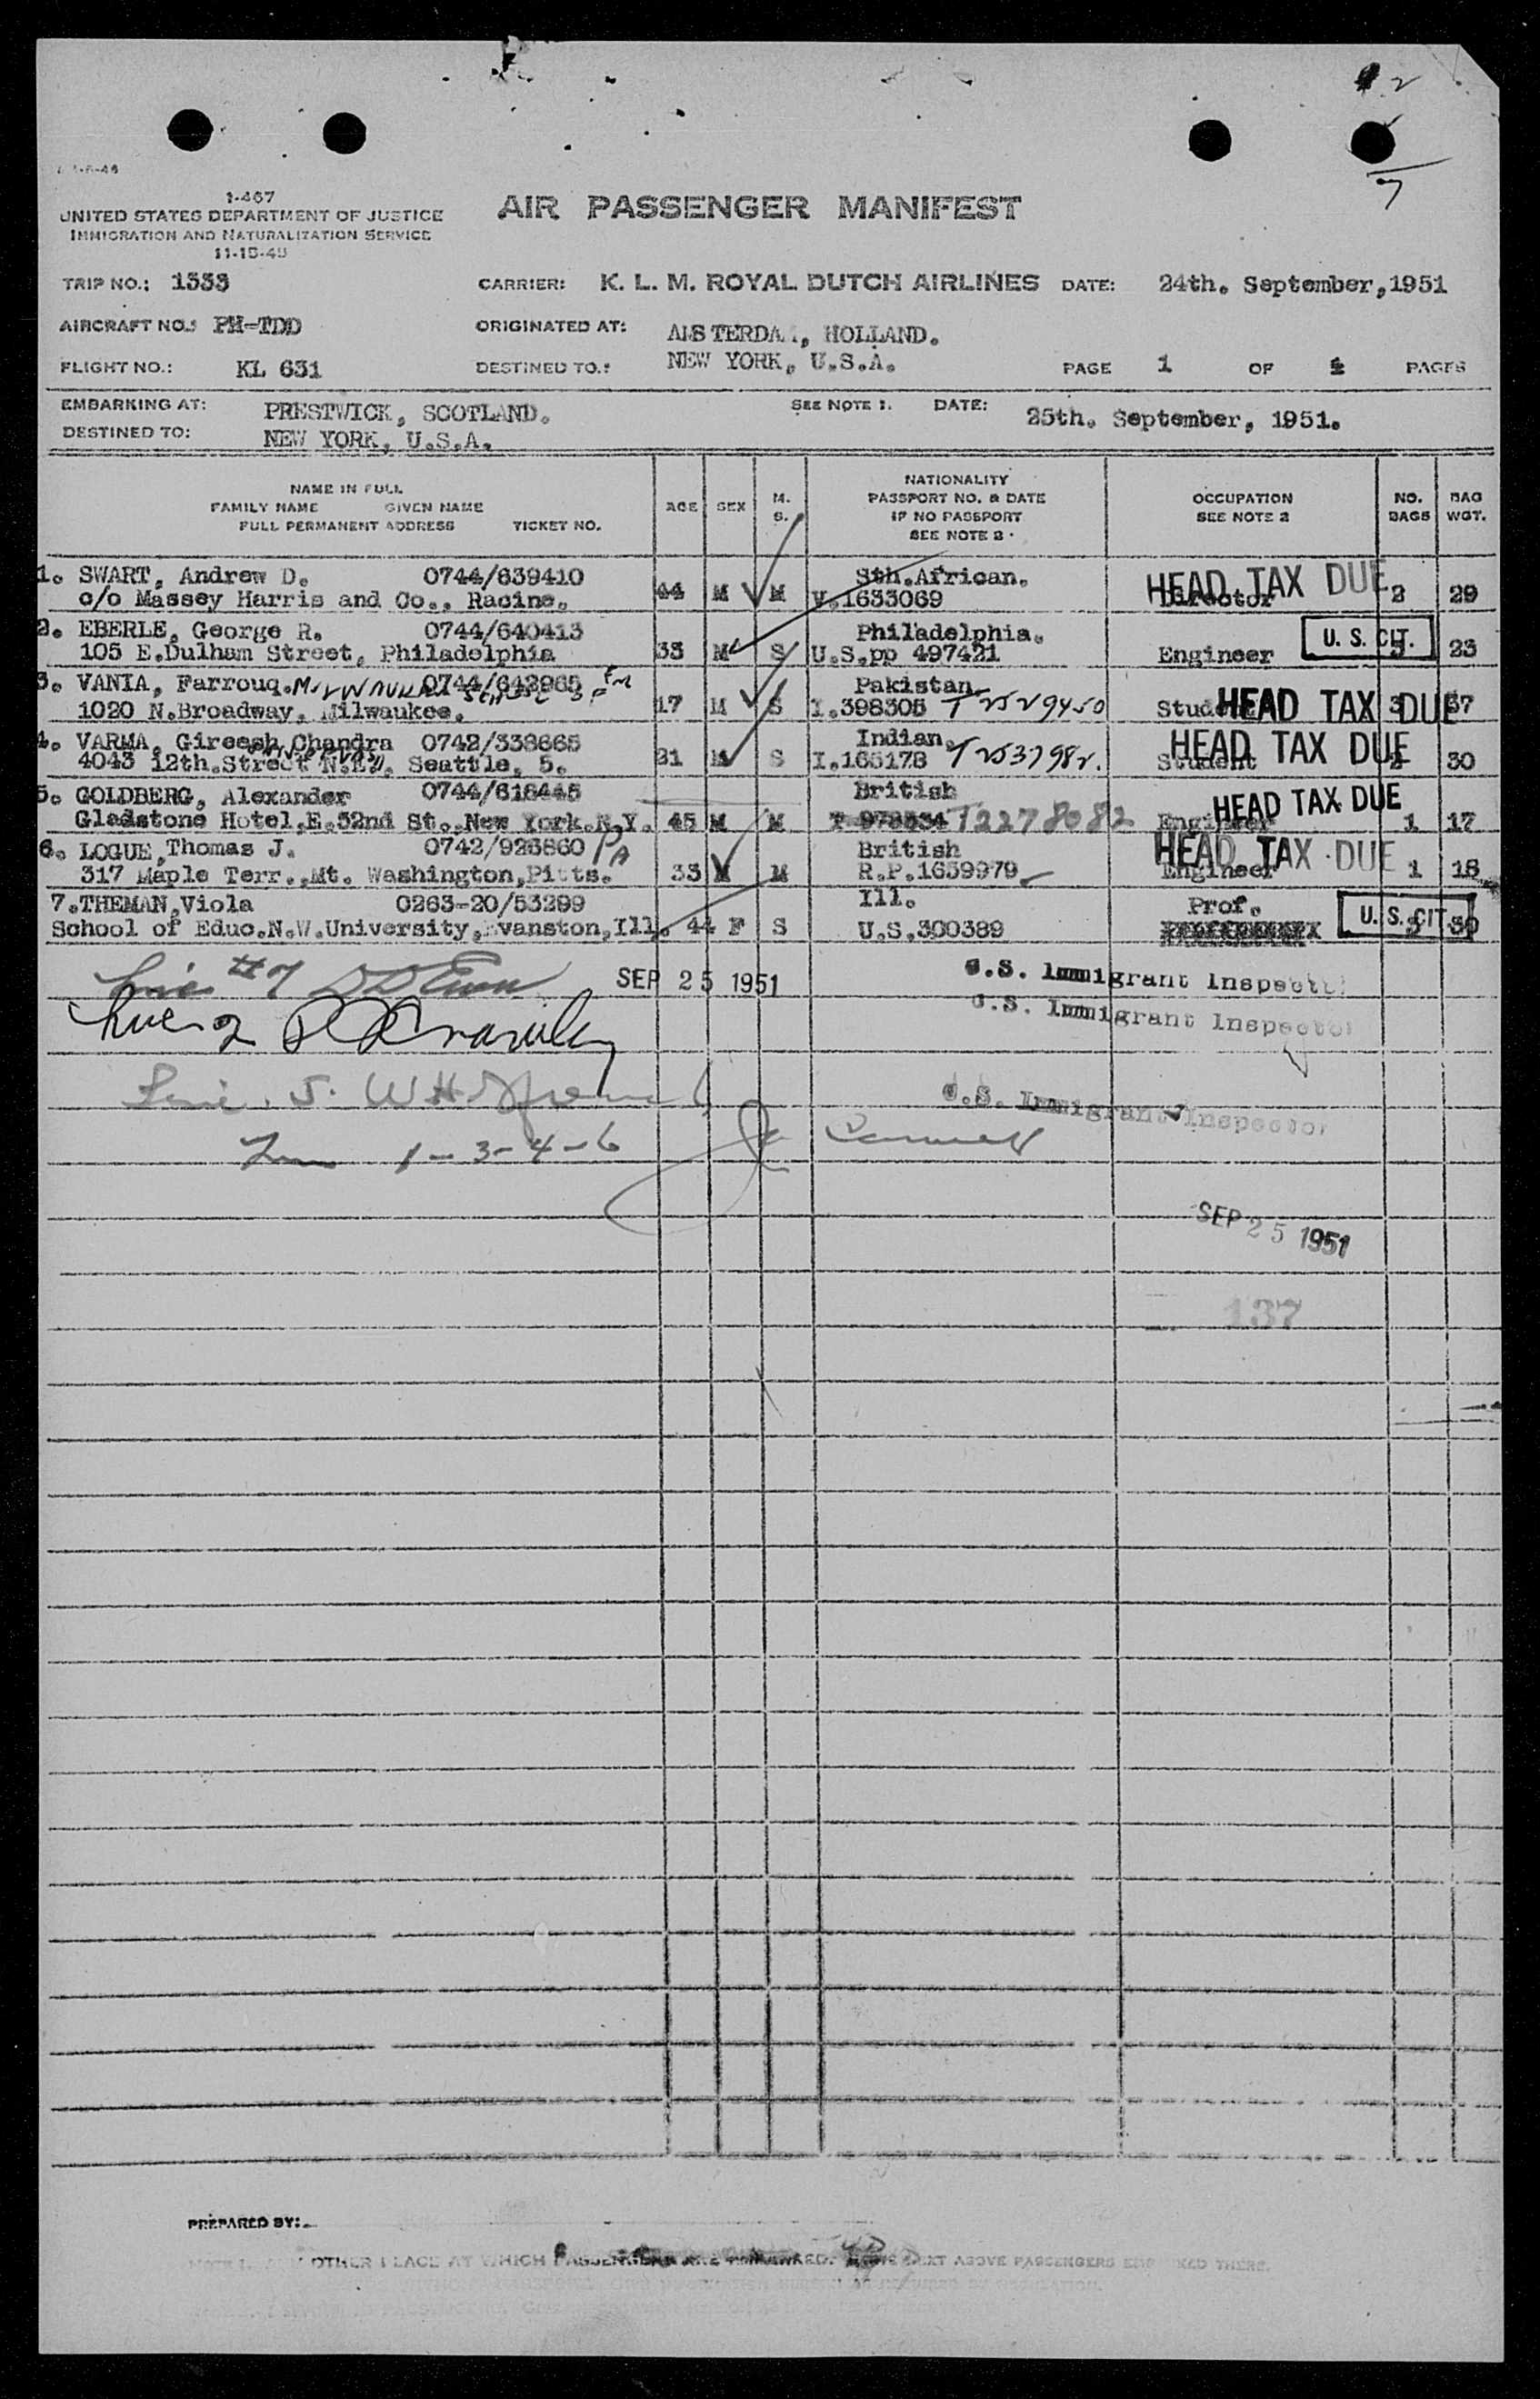 2
7
I-467
UNITED STATES DEPARTMENT OF JUSTICE
IMMIGRATION AND NATURALIZATION SERVICE
AIR PASSENGER MANIFEST
TRIP NO.: 1333 CARRIER: K. L. M. ROYAL DUTCH AIRLINES DATE: 24th. September,1951
AIRCRAFT NO.: PH-TDD ORIGINATED AT: AMSTERDAM, HOLLAND.
FLIGHT NO.: KL 631 DESTINED TO.: NEW YORK, U.S.A. PAGE 1 OF PAGES
EMBARKING AT: PRESTWICK, SCOTLAND. SEE NOTE 1. DATE: 25th. September, 1951.
DESTINED TO: NEW YORK, U.S.A.
NAME IN FULL
FAMILY NAME GIVEN NAME
FULL PERMANENT ADDRESS TICKET NO.
AGE SEX M. S.
NATIONALITY
PASSPORT NO. & DATE
IF NO PASSPORT
SEE NOTE 2
OCCUPATION
SEE NOTE 2
NO. BAGS
BAG WGT.
1. SWART, Andrew D. 0744/639410 Sth.African. HEAD TAX DUE
c/o Massey Harris and Co., Racine. 44 M M V.1633069 Director 2 29
2. EBERLE, George R. 0744/640413 Philadelphia. U. S. CIT.
105 E.Dulham Street, Philadelphia 33 M S U.S.pp 497421 Engineer 23
3. VANIA, Farrouq. 0744/642965 Pakistan HEAD TAX DUE
1020 N.Broadway, Milwaukee. 17 M S I.398305 T 2529450 Student 3 37
4. VARMA, Gireesh Chandra 0742/338665 Indian. HEAD TAX DUE
4043 12th.Street N.E. Seattle, 5. 21 M S I.165178 T 253798 Student 30
5. GOLDBERG, Alexander 0744/618445 British HEAD TAX DUE
Gladstone Hotel,E.52nd St.,New York.N.Y. 45 M M T2278082 Engineer 1 17
6. LOGUE,Thomas J. 0742/925860 PA British HEAD TAX DUE
317 Maple Terr.,Mt. Washington,Pitts. 33 M M R.P.1659979 Engineer 1 18
7.THEMAN,Viola 0263-20/53299 Ill. Prof. U. S. CIT.
School of Educ.N.W.University,Evanston,Ill. 44 F S U.S.300389 30
Line #7 SEP 25 1951 U.S. Immigrant Inspector
Line 2 U.S. Immigrant Inspector
Line 5. U.S. Immigrant Inspector
1-3-4-6
SEP 25 1951
137
PREPARED BY:
OTHER PLACE AT WHICH PASSENGERS ARE